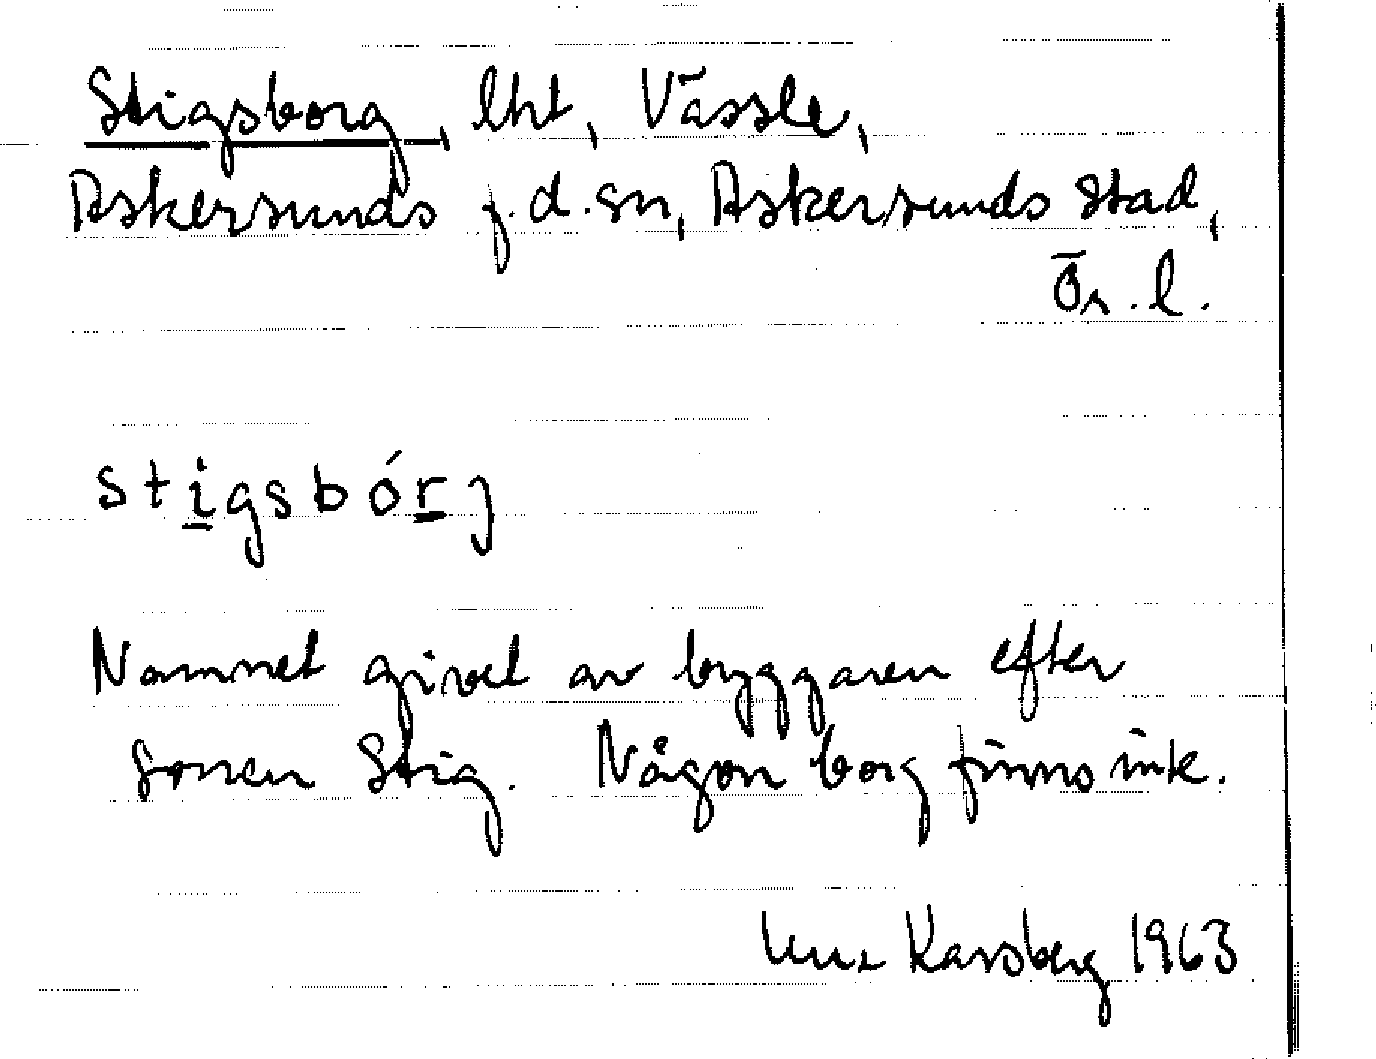 Stigsborg, lht, Vässle,
Askersunds f.d.sn, Askersunds stad,
Ör.l.
stigsbórj
Namnet givet av byggaren efter
sonen Stig. Någon borg finns inte.
Karsberg 1963